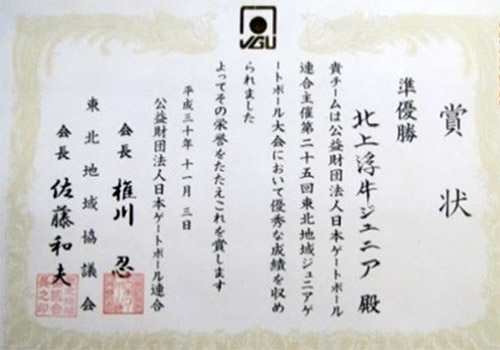 JGU
賞状
準優勝
北上浮牛ジュニア殿
貴チームは公益財団法人日本ゲートボール
連合主催第二十五回東北地域ジュニアゲ
ートボール大会において優秀な成績を収め
られました
よってその栄誉をたたえこれを賞します
平成三十年十一月三日
公益財団法人日本ゲートボール連合
会長 権川 忍
東北地域協議会
会長 佐藤和夫